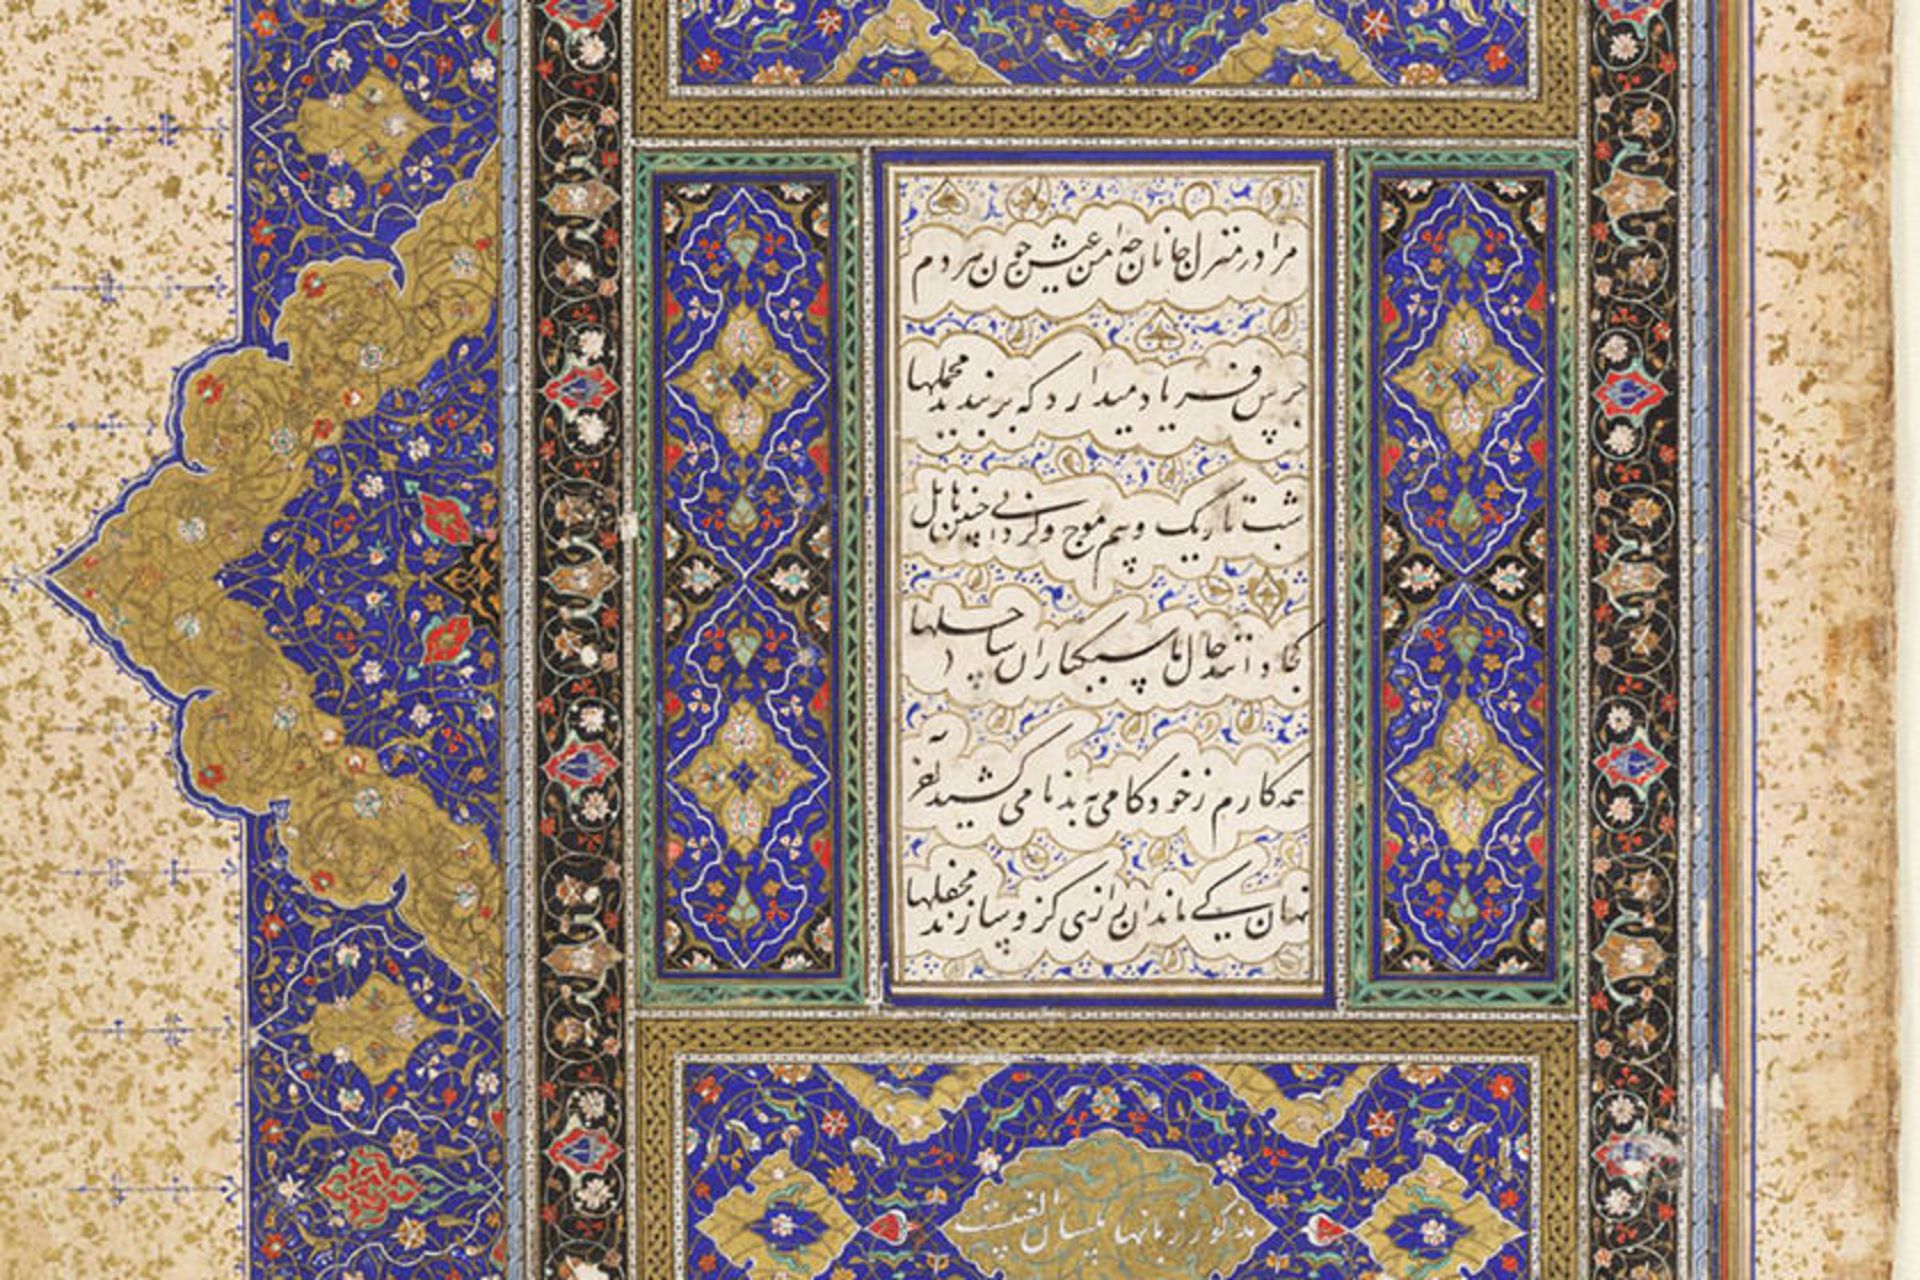 مرا در منزل جانان چه امن عیش چون هر دم
جرس فریاد میدارد که بربندید محملها
شب تاریک و بیم موج و گردابی چنین هایل
کجا دانند حال ما سبکباران ساحلها
همه کارم ز خود کامی به بدنامی کشید آخر
نهان کی ماند آن رازی کزو سازند محفلها
مذکور زبانها بلسان الغیبست